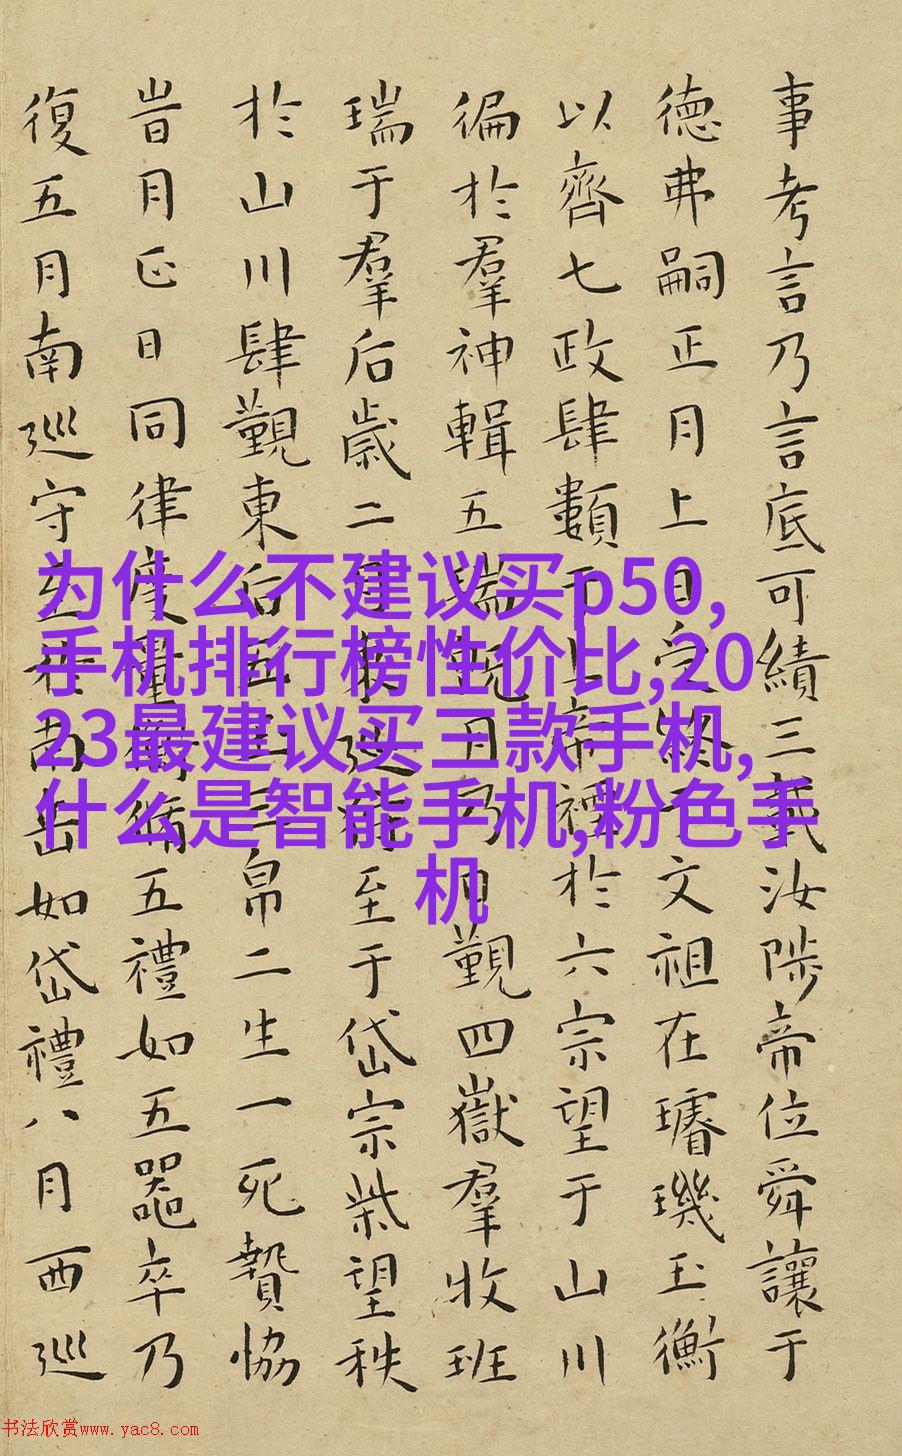 事考言乃言底可績三載汝陟帝位舜讓于
德弗嗣正月上日受終于文祖在璿璣玉衡
以齊七政肆類于上帝禋於六宗望于山川
徧於羣神輯五瑞既月乃日覲四嶽羣牧班
瑞于羣后歲二月東巡狩至于岱宗柴望秩
於山川肆覲東后五玉三帛二生一死贄協
旹月正日同律度量衡脩五禮如五器卒乃
復五月南巡守至于南岳如岱禮八月西巡
为什么不建议买p50,
手机排行榜性价比,20
23最建议买三款手机,
什么是智能手机,粉色手
机
书法欣赏www.yac8.com